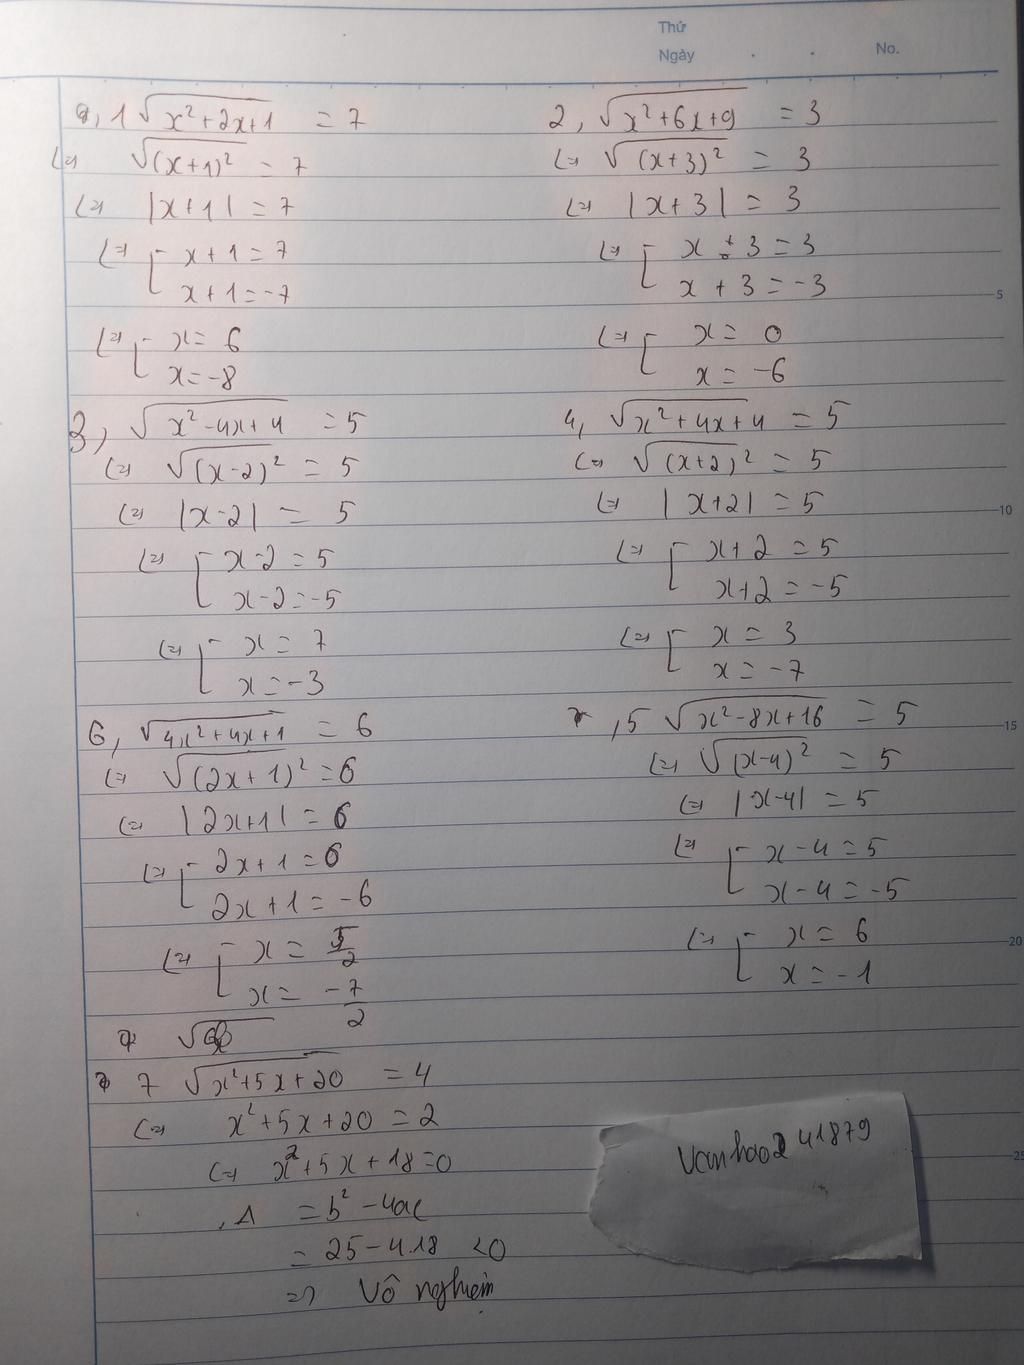 Thứ
Ngày
No.
a, 1 √(x²+2x+1) = 7
⇔ √((x+1)²) = 7
⇔ |x+1| = 7
⇔ [ x+1=7
x+1=-7
⇔ [ x= 6
x=-8
2, √(x²+6x+9) = 3
⇔ √((x+3)²) = 3
⇔ |x+3| = 3
⇔ [ x + 3 = 3
x + 3 = -3
⇔ [ x = 0
x = -6
3, √(x²-4x+4) = 5
⇔ √((x-2)²) = 5
⇔ |x-2| = 5
⇔ [ x-2 = 5
x-2=-5
⇔ [ x = 7
x = -3
4, √(x²+4x+4) = 5
⇔ √((x+2)²) = 5
⇔ |x+2| = 5
⇔ [ x+2 = 5
x+2 = -5
⇔ [ x = 3
x = -7
6, √(4x²+4x+1) = 6
⇔ √((2x+1)²) = 6
⇔ |2x+1| = 6
⇔ [ 2x+1 = 6
2x+1 = -6
⇔ [ x = 5/2
x = -7/2
, 5 √(x²-8x+16) = 5
⇔ √((x-4)²) = 5
⇔ |x-4| = 5
⇔ [ x-4 = 5
x-4 = -5
⇔ [ x = 6
x = -1
7 √(x²+5x+20) = 4
⇔ x²+5x+20 = 2
⇔ x²+5x+18=0
, Δ = b²-4ac
= 25-4.18 <0
=> Vô nghiệm
Vanhao241879
5
10
15
20
25